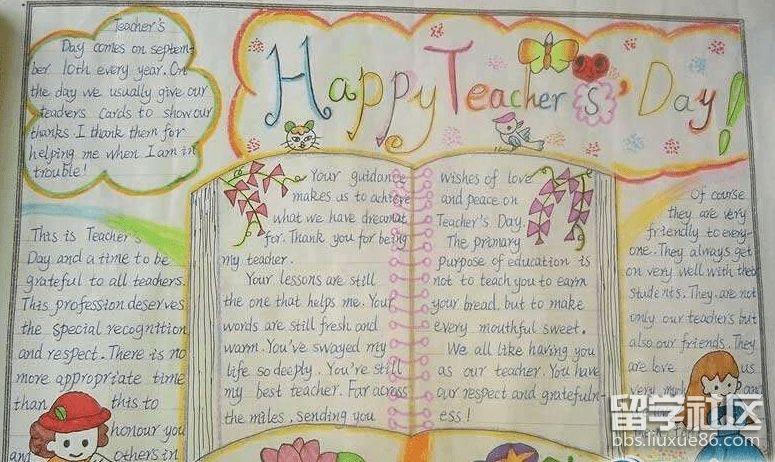 Teacher's
Day comes on septem-
ber 10th every year. On
the day we usually give our
teachers cards to show our
thanks I thank them for
helping me when I am in
trouble!
Happy Teachers' Day!
This is Teacher's
Day and a time to be
grateful to all teachers.
This profession deserves
the special recognition
and respect. There is no
more appropriate time
than this to
honour you
and others in
Your guidance
makes us to achieve
what we have dreamt
for. Thank you for being
my teacher.
Your lessons are still
the one that helps me. Your
words are still fresh and
warm. You've swayed my
life so deeply. You're still
my best teacher. Far across
the miles, sending you
wishes of love
and peace on
Teacher's Day.
The primary
purpose of education is
not to teach you to earn
your bread, but to make
every mouthful sweet.
We all like having you
as our teacher. You have
our respect and grateful n-
ess!
Of course
they are very
friendly to every-
one. They always get
on very well with their
students. They are not
only our teachers but
also our friends. They
are love us
very much
留学社区
bbs.liuxue86.com